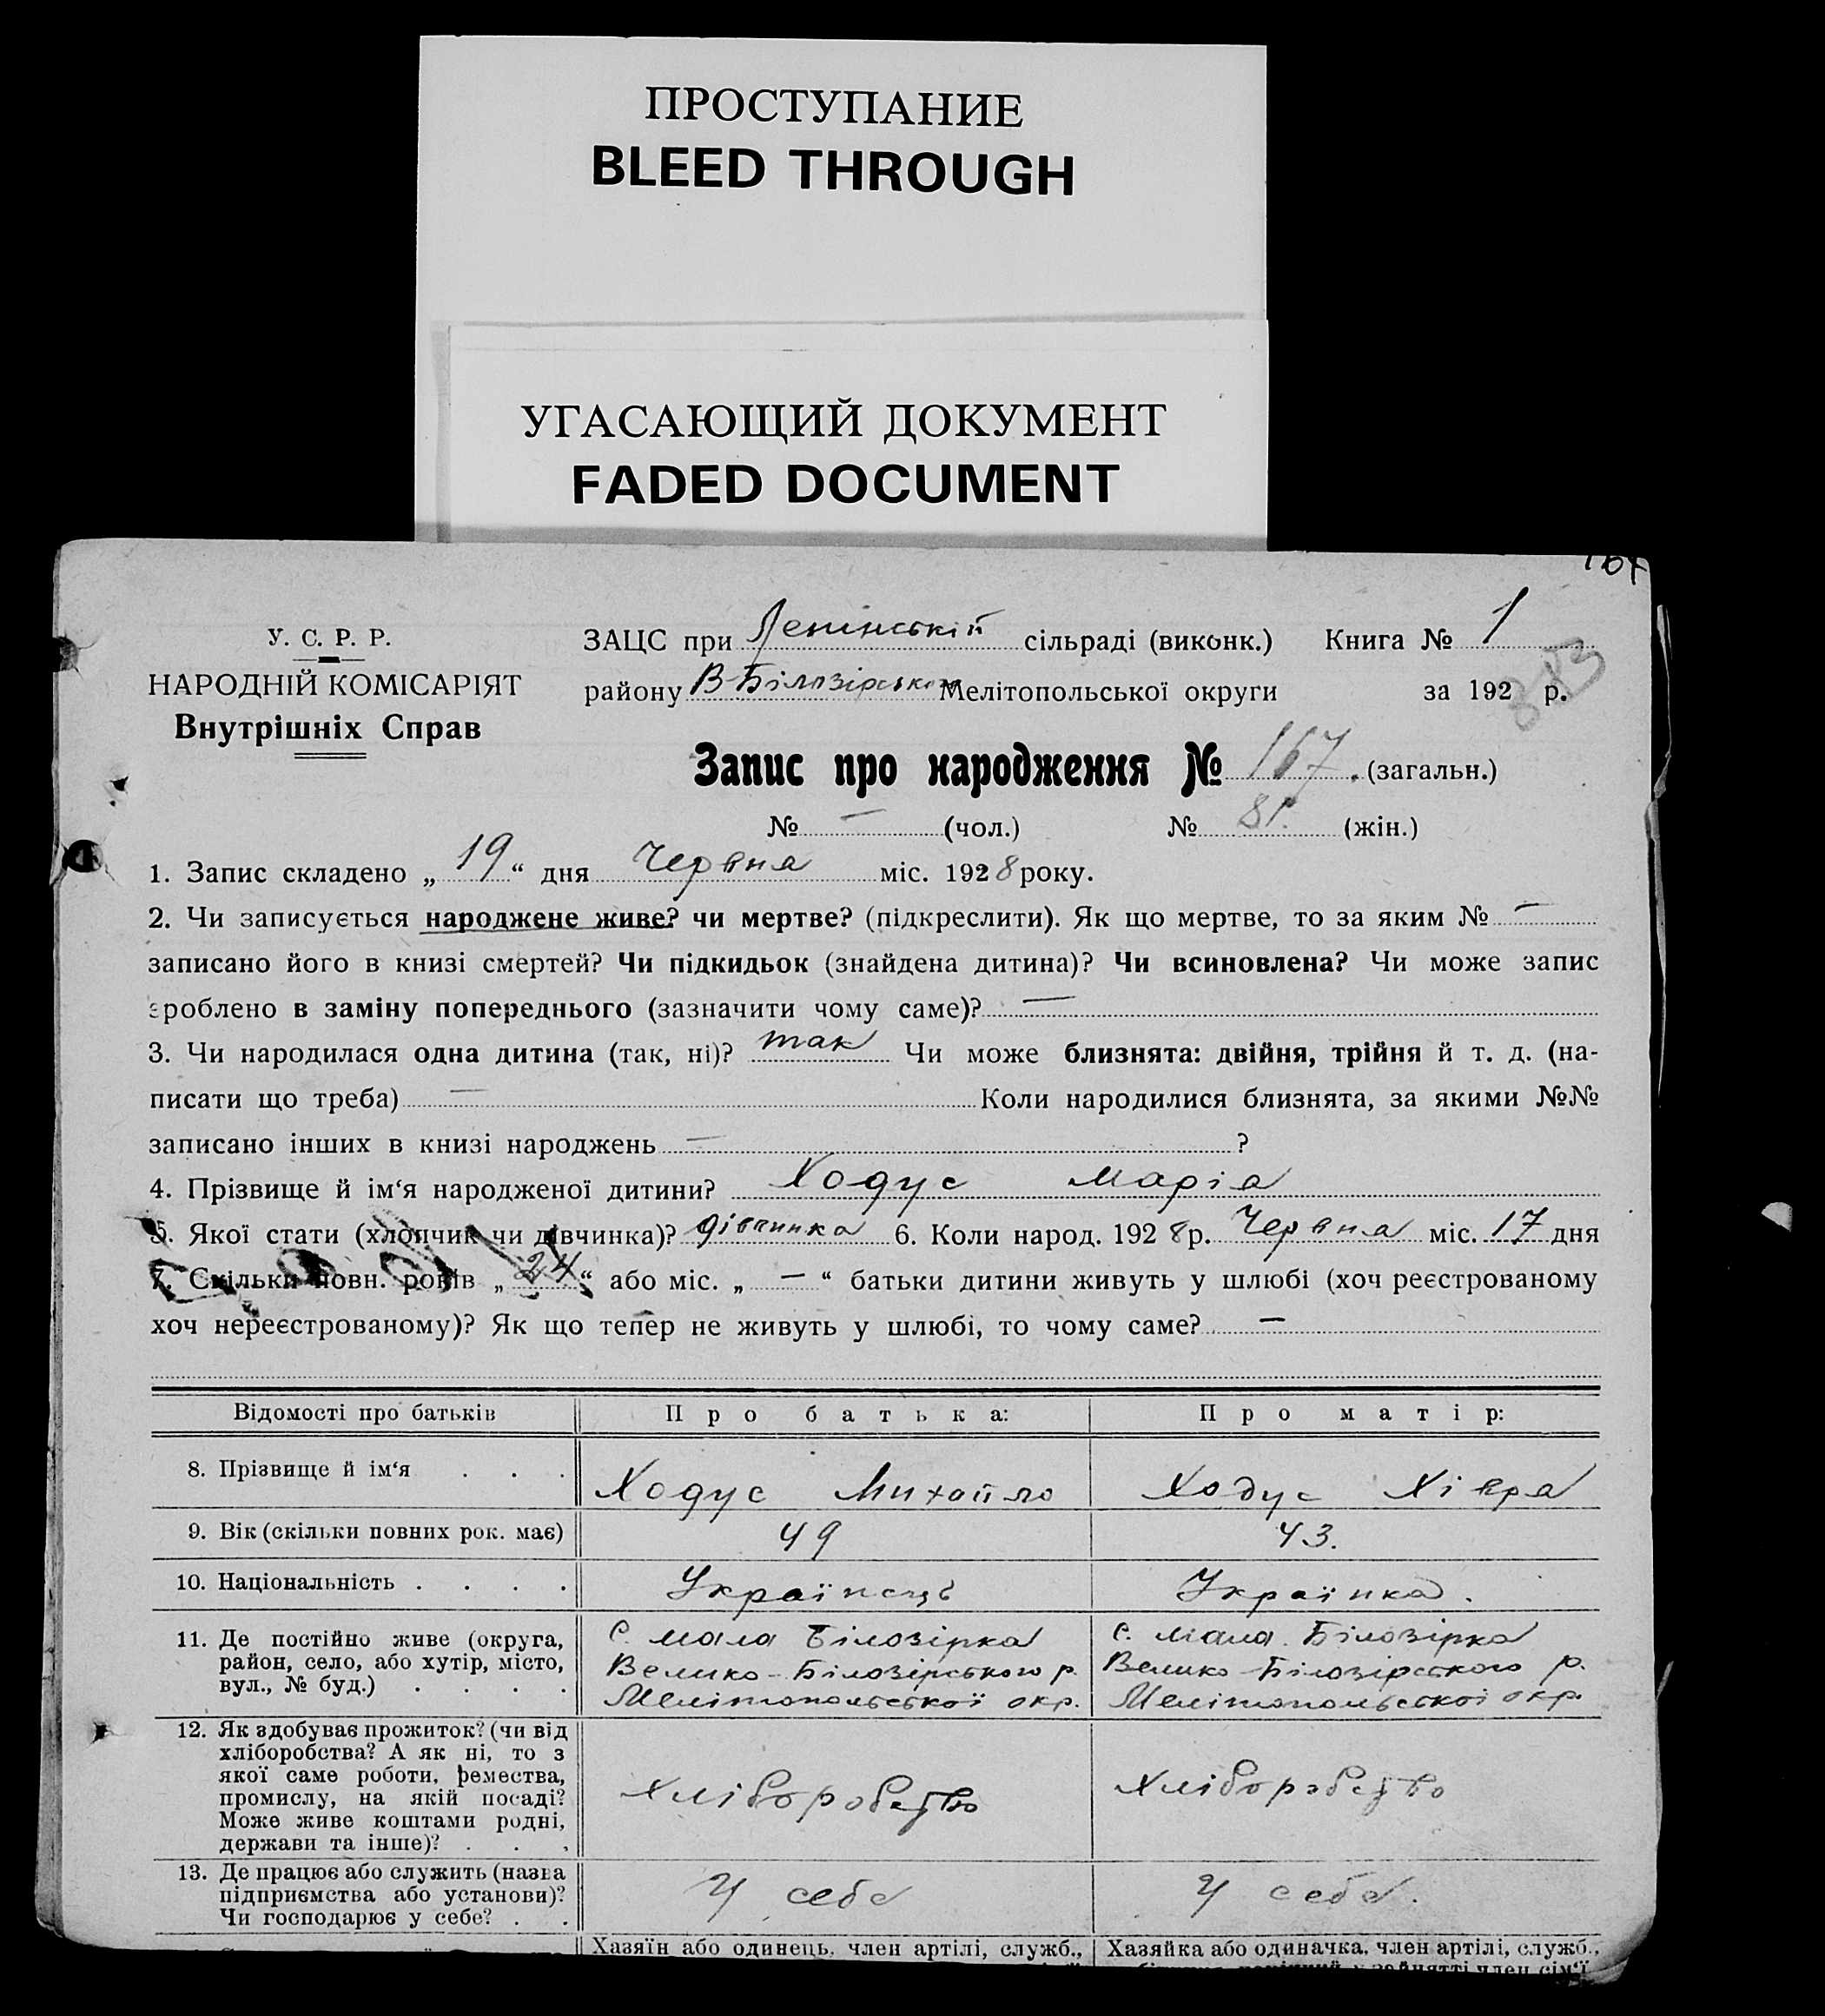 ПРОСТУПАНИЕ
BLEED THROUGH
УГАСАЮЩИЙ ДОКУМЕНТ
FADED DOCUMENT
167
У. С. Р. Р.
НАРОДНІЙ КОМІСАРІЯТ
Внутрішніх Справ
ЗАЦС при Ленінській сільраді (виконк.) Книга № 1
району В-Білозірського Мелітопольської округи за 192 р.
383
Запис про народження № 167. (загальн.)
№ — (чол.) № 81. (жін.)
1. Запис складено „ 19 “ дня Червня міс. 1928 року.
2. Чи записується народжене живе? чи мертве? (підкреслити). Як що мертве, то за яким № —
записано його в книзі смертей? Чи підкидьок (знайдена дитина)? Чи всиновлена? Чи може запис
зроблено в заміну попереднього (зазначити чому саме)? —
3. Чи народилася одна дитина (так, ні)? так Чи може близнята: двійня, трійня й т. д. (на-
писати що треба) — Коли народилися близнята, за якими №№
записано інших в книзі народжень — ?
4. Прізвище й ім‘я народженої дитини? Ходус Марія
5. Якої стати (хлопчик чи дівчинка)? дівчинка 6. Коли народ. 1928 р. Червня міс. 17 дня
7. Скільки повн. років „ 24 “ або міс. „ — “ батьки дитини живуть у шлюбі (хоч реєстрованому
хоч нереєстрованому)? Як що тепер не живуть у шлюбі, то чому саме? —
Відомості про батьків Про батька: Про матір:
8. Прізвище й ім‘я . . . Ходус Михайло Ходус Хівря
9. Вік (скільки повних рок. має) 49 43.
10. Національність . . . . Українець Українка.
11. Де постійно живе (округа,
район, село, або хутір, місто,
вул., № буд.) . . . .
с. Мала Білозірка
Велико-Білозірського р.
Мелітопольської окр.
с. Мала Білозірка
Велико-Білозірського р.
Мелітопольської окр.
12. Як здобуває прожиток? (чи від
хліборобства? А як ні, то з
якої саме роботи, ремества,
промислу, на якій посаді?
Може живе коштами родні,
держави та інше)? . . .
Хліборобство
Хліборобство
13. Де працює або служить (назва
підприємства або установи)?
Чи господарює у себе? . .
У себе
У себе.
Хазяїн або одинець, член артілі, служб., Хазяйка або одиначка, член артілі, служб.,